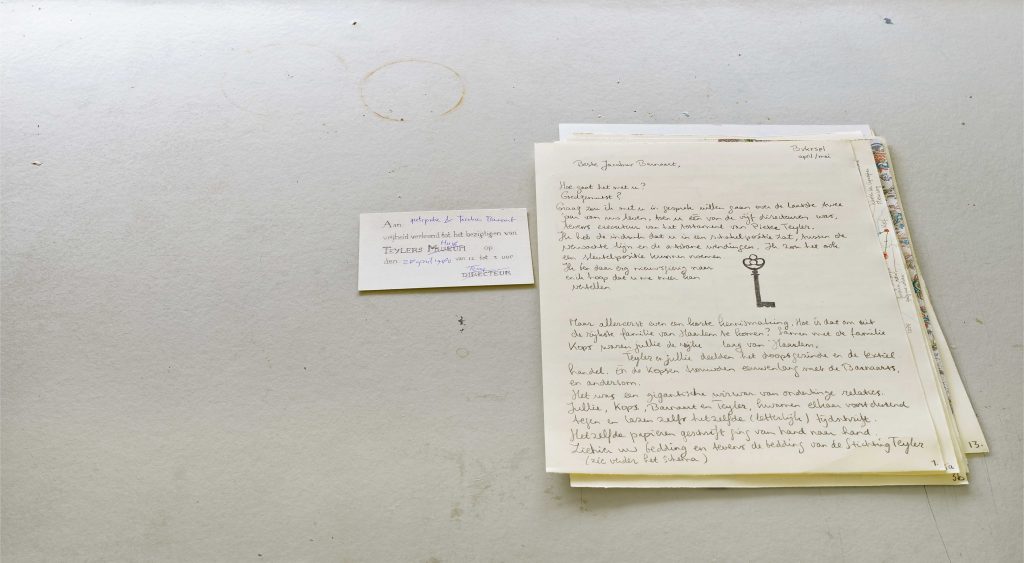 Aan
vrijheid verleend tot het bezigtigen van
TEYLERS MUSEUM op
Huis
den van 12 tot 2 uur
DIRECTEUR
Bakkum
april/mei
Beste Jacobus Barnaart,
Hoe gaat het met u?
Goedgemutst?
Graag zou ik met u in gesprek willen gaan over de laatste twee
jaar van uw leven, toen u één van de vijf directeuren was,
tevens executeur van het testament van Pieter Teyler.
Ik heb de indruk dat u in een schakelpositie zat, tussen de
verwachte lijn en de wendingen. Ik zou het ook
een sleutelpositie kunnen noemen
Ik ben daar erg nieuwsgierig naar
en ik hoop dat u me meer kan
vertellen
Maar allereerst even een korte kennismaking. Hoe is dat om uit
de rijkste familie van Haarlem te komen? Samen met de familie
Kops waren jullie de rijke laag van Haarlem.
Teyler en jullie deelden het doopsgezinde en de textiel
handel. En de Kopsen trouwden eeuwenlang met de Barnaarts,
en andersom.
Het was een gigantische wirwar van onderlinge relaties.
Jullie, Kops, Barnaart en Teyler, kwamen elkaar voortdurend
tegen en lazen zelfs hetzelfde (letterlijk) tijdschrift.
Hetzelfde papieren geschrift ging van hand naar hand.
Ziehier uw bedding en tevens de bedding van de Stichting Teyler
(zie verder het schema)
1.
5a
5b
13.